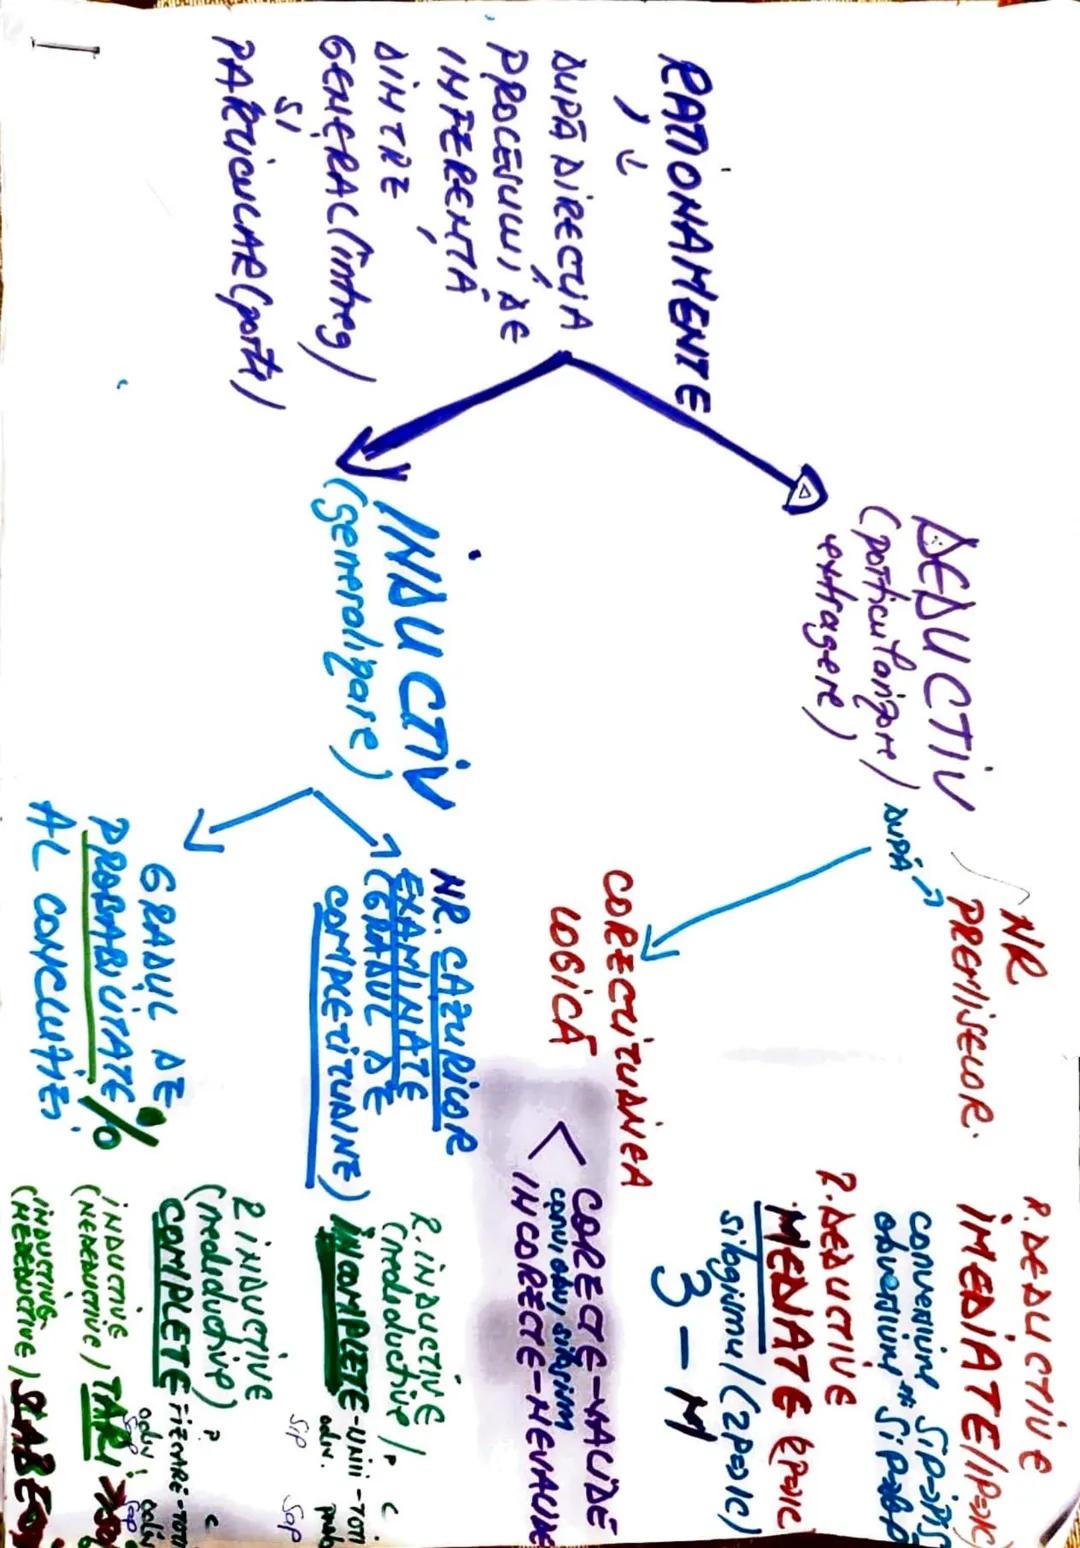 RAȚIONAMENTE
DUPĂ DIRECȚIA
PROCESULUI DE
INFERENȚĂ
DINTRE
GENERAL (întreg)
ȘI
PARTICULAR (parte)
DEDUCTIV
(particularizare)
extragere)
DUPĂ
NR
PREMISELOR.
R. DEDUCTIVE
IMEDIATE (1P=>1C)
conversiune SiP=>PiS
obversiune # SiP=>
R. DEDUCTIVE
MEDIATE (2P=>1C
silogismu (2P=>1C)
3 - M
CORECTITUDINEA
LOGICĂ
CORECTE-VALIDE
conv, obv, silogism
INCORECTE-NEVALIDE
INDUCTIV
(generalizare)
NR. CAZURILOR
EXAMINATE
(GRADUL DE
COMPLETITUDINE)
R. INDUCTIVE
(nedductive) P C
INCOMPLETE-UNII-TOȚI
adv.
SiP SaP
R INDUCTIVE
(nedductive) P C
COMPLETE FIECARE-TOȚI
adv.
SaP SaP
GRADUL DE
PROBABILITATE %
AL CONCLUZIEI
INDUCTIVE
(NEDEDUCTIVE) TARI
INDUCTIVE
(NEDEDUCTIVE) SLABE